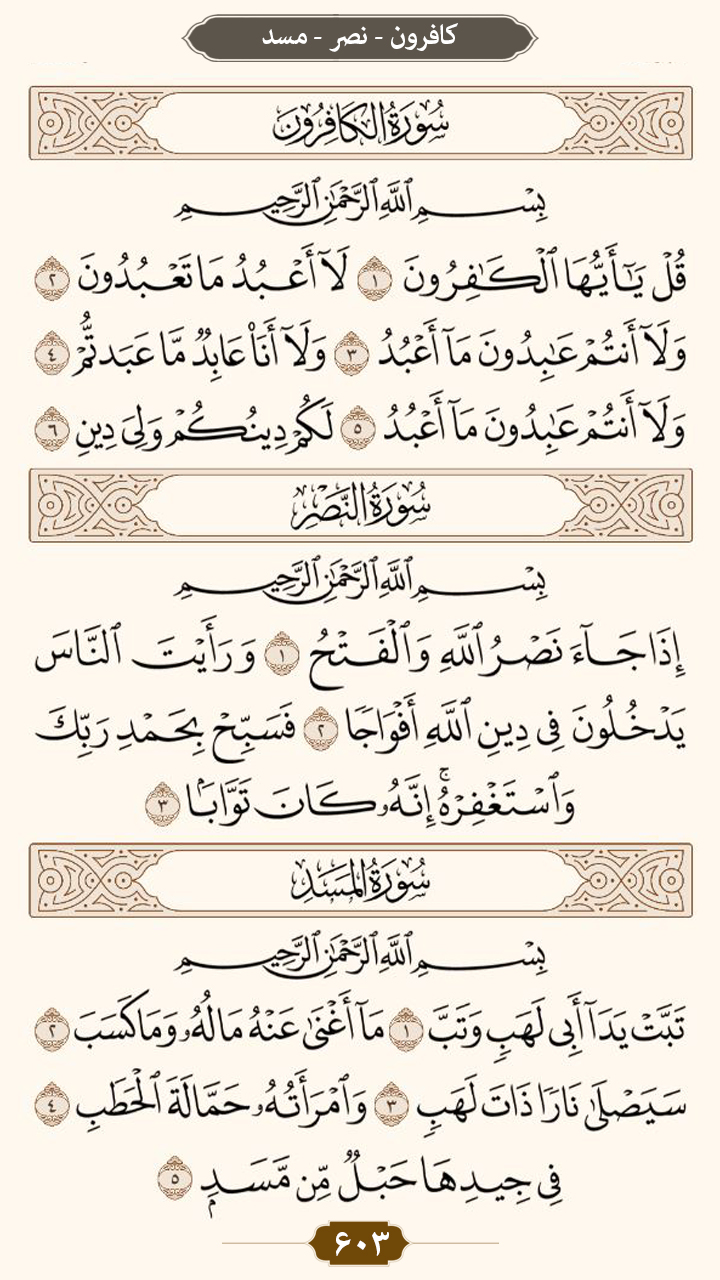 كافرون - نصر - مسد
سُورَةُ الكَافِرُونَ
بِسْمِ ٱللَّهِ ٱلرَّحْمَٰنِ ٱلرَّحِيمِ
قُلْ يَٰٓأَيُّهَا ٱلْكَٰفِرُونَ ١ لَآ أَعْبُدُ مَا تَعْبُدُونَ ٢
وَلَآ أَنتُمْ عَٰبِدُونَ مَآ أَعْبُدُ ٣ وَلَآ أَنَا۠ عَابِدٌ مَّا عَبَدتُّمْ ٤
وَلَآ أَنتُمْ عَٰبِدُونَ مَآ أَعْبُدُ ٥ لَكُمْ دِينُكُمْ وَلِىَ دِينِ ٦
سُورَةُ النَّصْرِ
بِسْمِ ٱللَّهِ ٱلرَّحْمَٰنِ ٱلرَّحِيمِ
إِذَا جَآءَ نَصْرُ ٱللَّهِ وَٱلْفَتْحُ ١ وَرَأَيْتَ ٱلنَّاسَ
يَدْخُلُونَ فِى دِينِ ٱللَّهِ أَفْوَاجًا ٢ فَسَبِّحْ بِحَمْدِ رَبِّكَ
وَٱسْتَغْفِرْهُ ۚ إِنَّهُۥ كَانَ تَوَّابًۢا ٣
سُورَةُ المَسَدِ
بِسْمِ ٱللَّهِ ٱلرَّحْمَٰنِ ٱلرَّحِيمِ
تَبَّتْ يَدَآ أَبِى لَهَبٍ وَتَبَّ ١ مَآ أَغْنَىٰ عَنْهُ مَالُهُۥ وَمَا كَسَبَ ٢
سَيَصْلَىٰ نَارًا ذَاتَ لَهَبٍ ٣ وَٱمْرَأَتُهُۥ حَمَّالَةَ ٱلْحَطَبِ ٤
فِى جِيدِهَا حَبْلٌ مِّن مَّسَدٍۭ ٥
۶۰۳